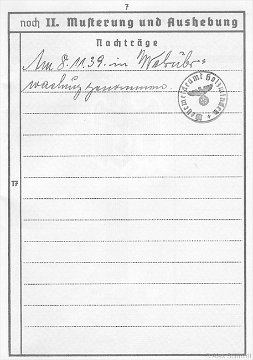 7
noch II. Musterung und Aushebung
Nachträge
Am 8.11.39. in Wehrüber-
wachung genommen.
17
Wehrmeldeamt